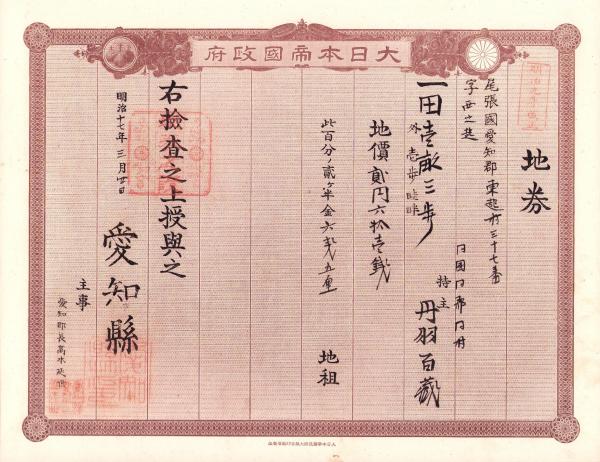 大日本帝國政府
地券
尾張國愛知郡東起村三十七番
字西之越
同國同郡同村
持主 丹羽百蔵
一田壹畝三歩
外壹歩畦畔
地價貳円六拾壹銭
此百分ノ貳ヶ半金六銭五厘 地租
右撿査之上授與之
明治十七年三月廿日
愛知縣
主事
愛知郡長高木